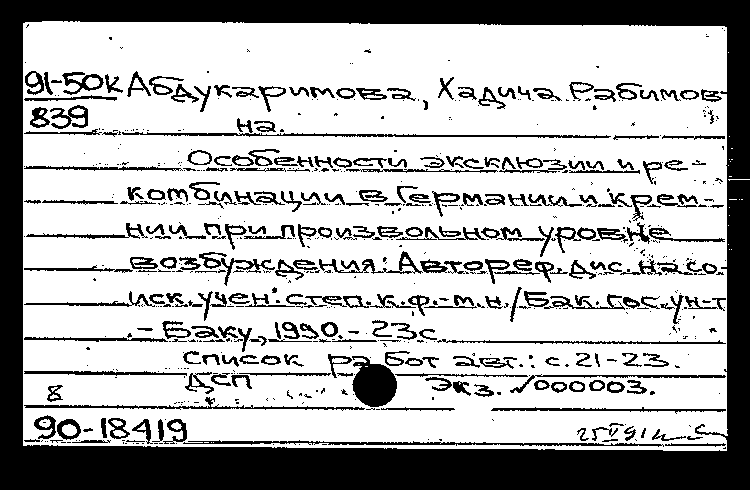 91-50к Абдукаримова, Хадича Рабимов-
839 на.
Особенности эксклюзии и ре-
комбинации в Германии и крем-
нии при произвольном уровне
возбуждения: Автореф. дис. на со-
иск. учен. степ. к.ф.-м.н./Бак. гос. ун-т
.- Баку, 1990.- 23с.
Список работ авт.: с.21-23.
8 ДСП Экз. √000003.
90-18419